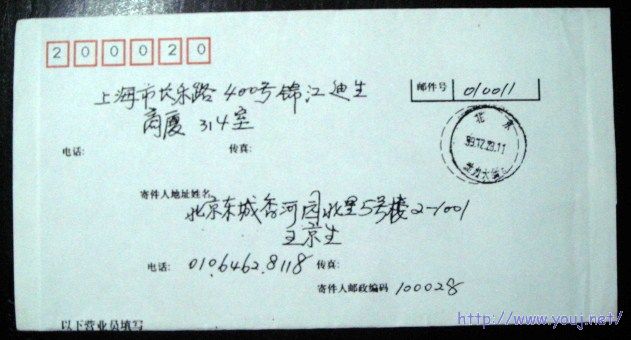 200020
上海市长乐路400号锦江迪生
商厦 314室
邮件号 010011
电话: 传真:
北京
99.12.29.11
寄件人地址姓名
北京东城香河园北里5号楼2-1001
王京生
电话: 010.6462.8118 传真:
寄件人邮政编码 100028
以下营业员填写
http://www.youj.net/